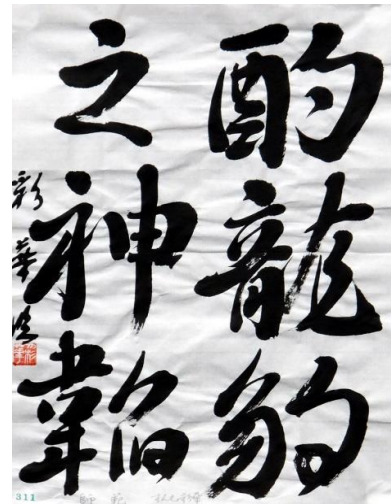 酌龍豹
之神韜
彩華
311